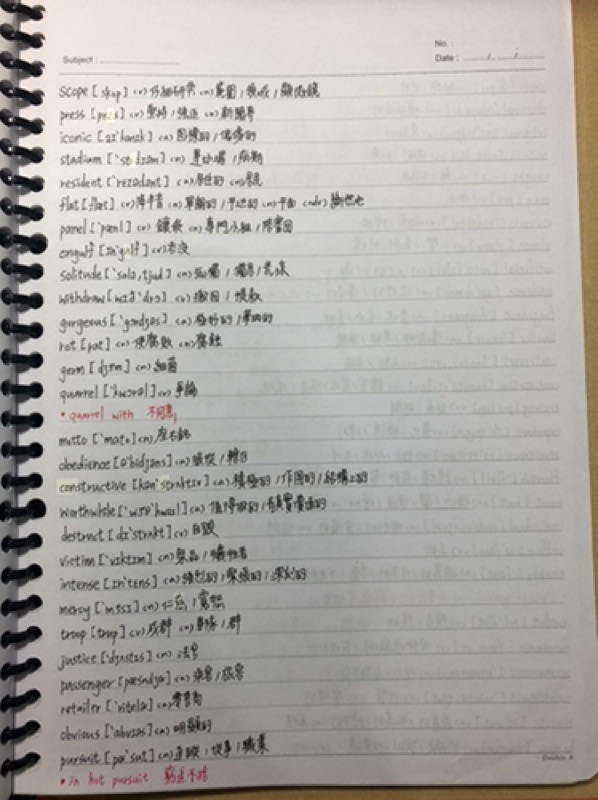 Subject :
No. :
Date : / /
scope [skop] (v) 仔細研究 (n) 範圍 / 顯微鏡
press [prɛs] (v) 堅持 / 強迫 (n) 新聞界
iconic [aɪ'kɑnɪk] (a) 圖標的 / 偶像的
stadium ['stedɪəm] (n) 運動場
resident ['rɛzədənt] (a) 居住的 (n) 居民
flat [flæt] (n) 降半音 (a) 單調的 / 平坦的 (n) 平面 (adv)
panel ['pænl] (v) 鑲嵌 (n) 專門小組 / 陪審團
engulf [ɪn'gʌlf] (v) 吞沒
solitude ['sɑlə,tjud] (n) 孤獨
withdraw [wɪð'drɔ] (v) 撤回
gorgeous ['gɔrdʒəs] (a) 極好的 / 華麗的
rot [rɑt] (v) 使腐敗 (n) 腐蝕
germ [dʒɝm] (n) 細菌
quarrel ['kwɔrəl] (v) 爭論
• quarrel with 不同意
motto ['mɑto] (n) 座右銘
obedience [ə'bidjəns] (n) 服從
constructive [kən'strʌktɪv] (a) 積極的 / 作圖的 / 結構上的
worthwhile ['wɝθ'hwaɪl] (a) 值得做的 / 有真實價值的
destruct [dɪ'strʌkt] (v) 自毀
victim ['vɪktɪm] (n) 祭品 / 犧牲者
intense [ɪn'tɛns] (a) 強烈的 / 緊張的 / 深刻的
mercy ['mɝsɪ] (n) 仁慈 / 寬恕
troop [trup] (v) 成群 (n) 軍隊 / 群
justice ['dʒʌstɪs] (n) 法官
passenger ['pæsndʒɚ] (n) 乘客 / 旅客
retailer ['ritelɚ] (n) 零售商
obvious ['ɑbvɪəs] (a) 明顯的
pursuit [pɚ'sut] (n) 追蹤 / 從事 / 職業
• in hot pursuit 窮追不捨